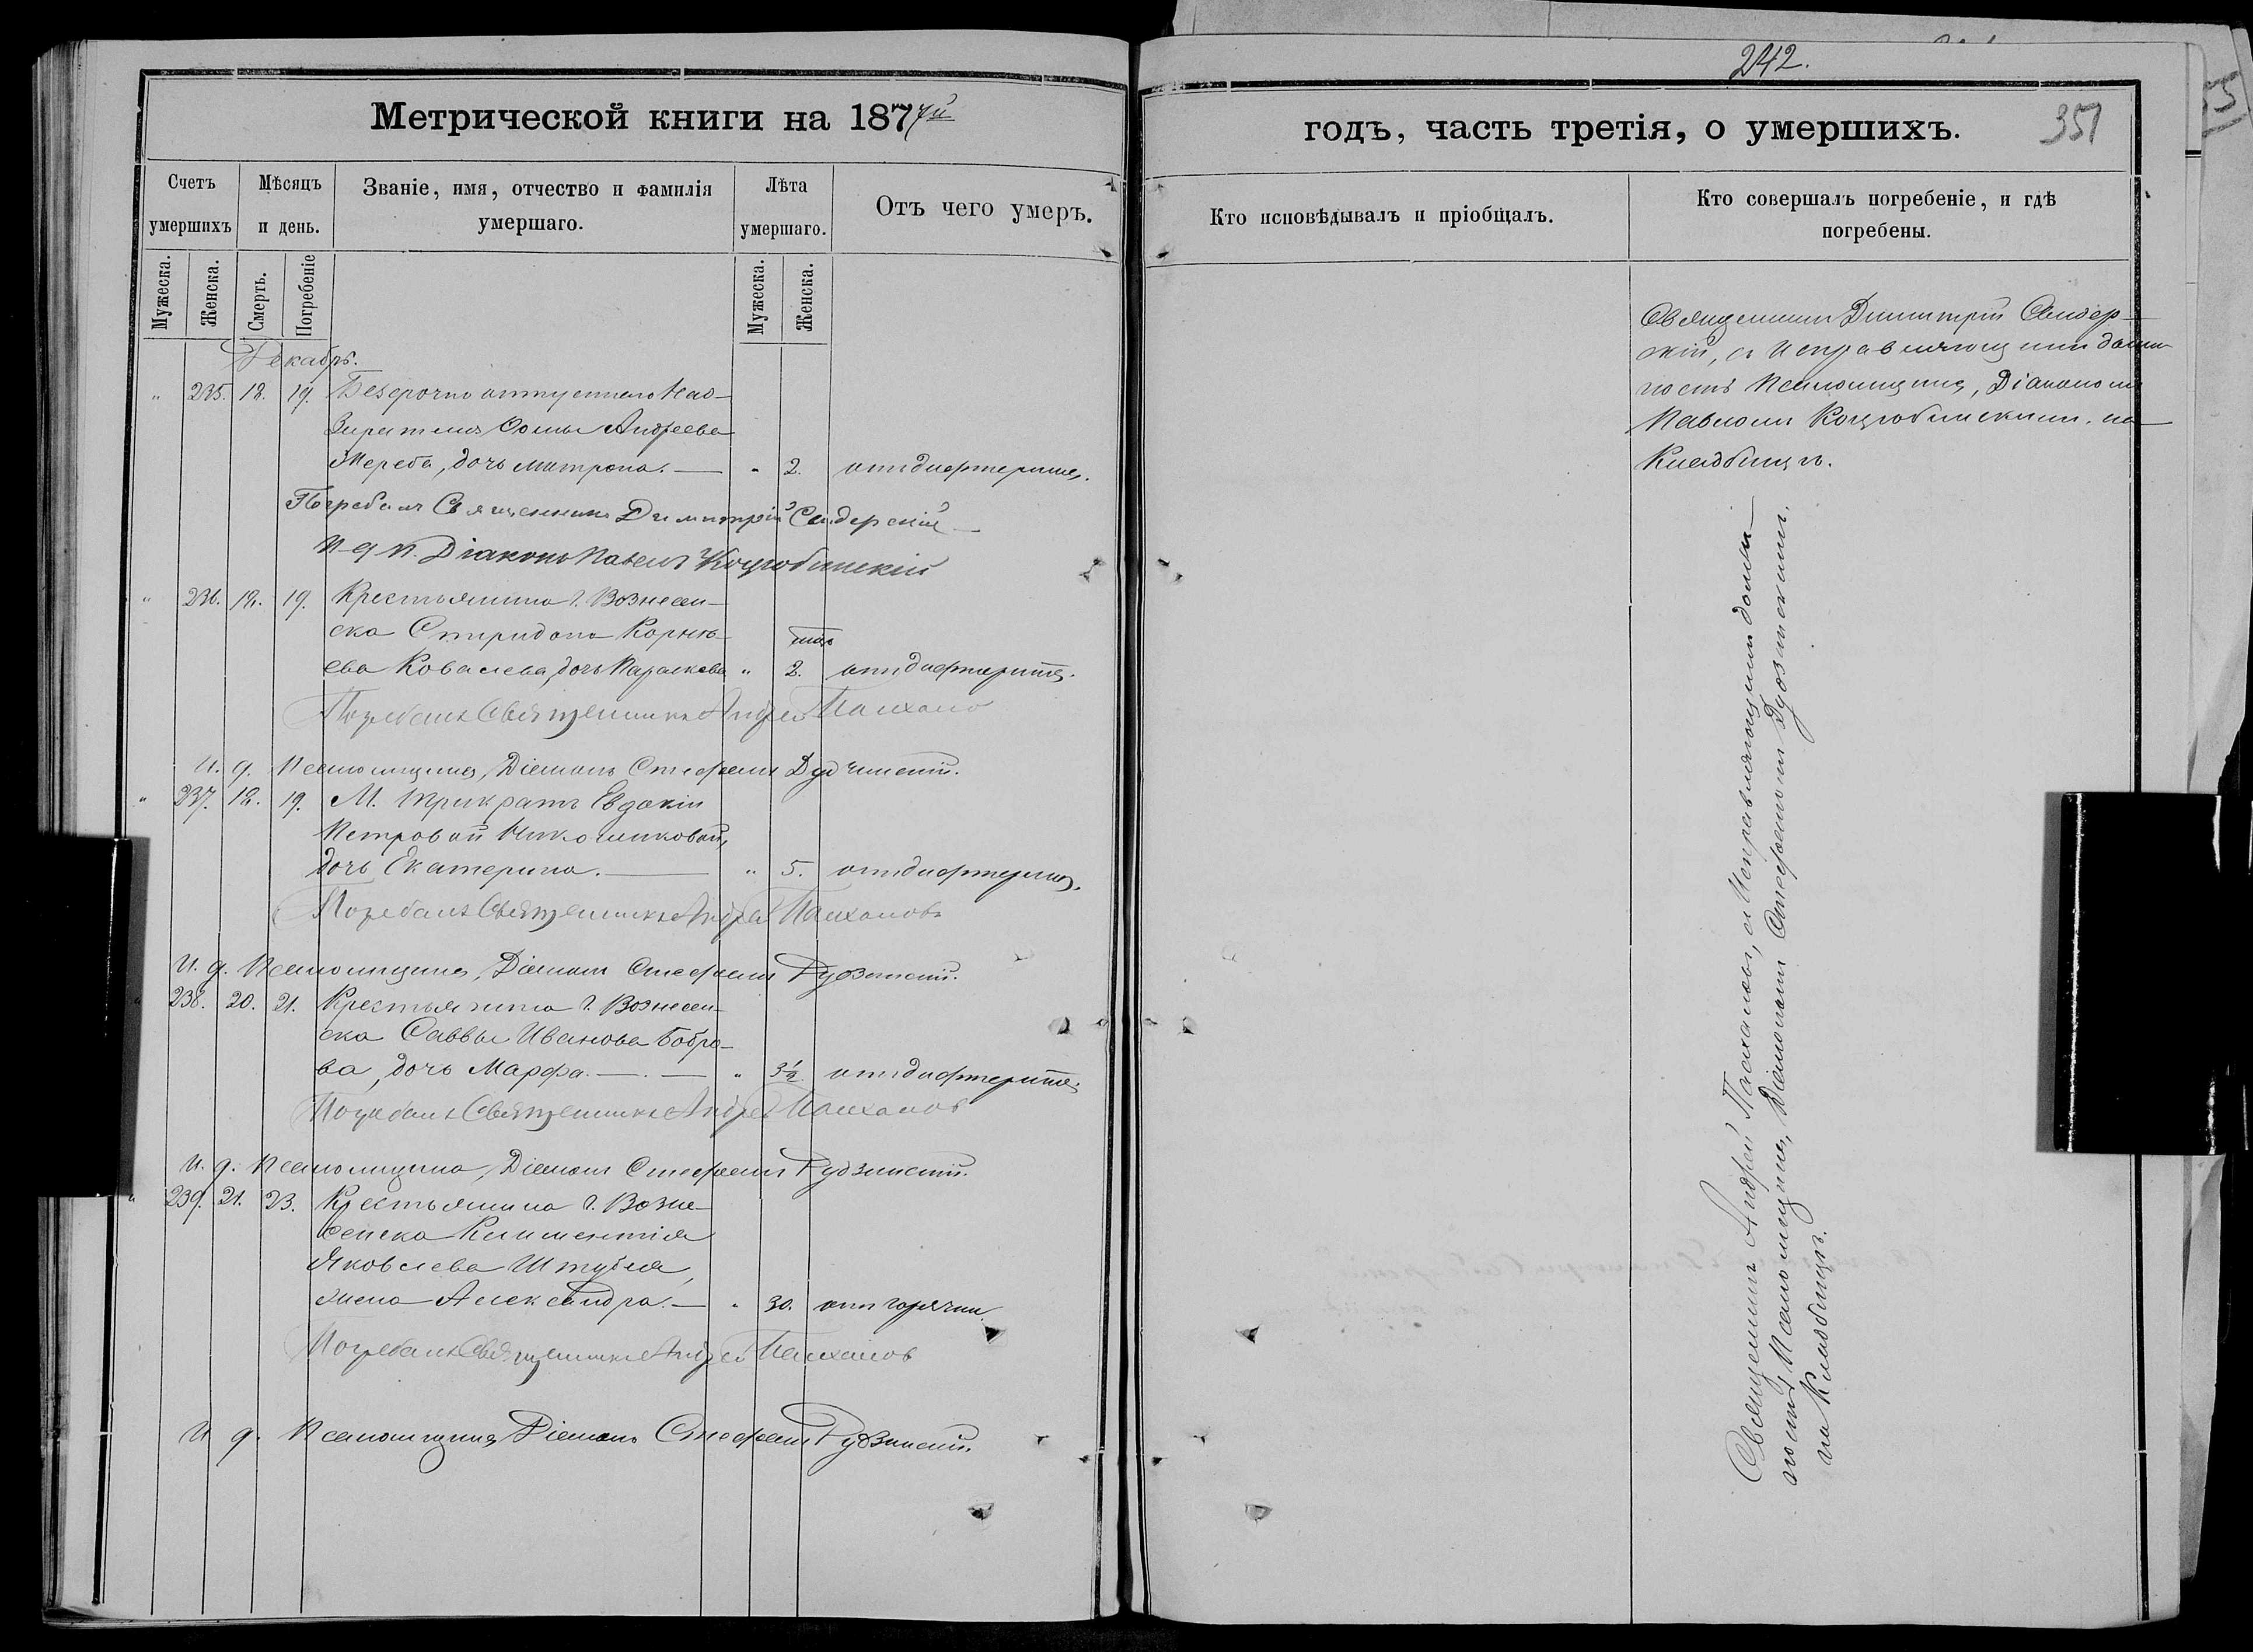 242.
351
Метрической книги на 1877й
годъ, часть третія, о умершихъ.
Счетъ умершихъ
Мѣсяцъ и день.
Званіе, имя, отчество и фамилія умершаго.
Лѣта умершаго.
Отъ чего умеръ.
Кто исповѣдывалъ и пріобщалъ.
Кто совершалъ погребеніе, и гдѣ погребены.
Мужеска.
Женска.
Смерть.
Погребеніе
Мужеска.
Женска.
Декабрь.
" 235. 18. 19. Безсрочно отпускнаго Над-
зирателя Сомы Андреева
дочь Матрона. — " 2. отъ дифтерита.
Погребалъ Священникъ Димитрій
И д п. Діаконъ Павелъ Коцюбинскій
" 236. 18. 19. Крестьянина г. Вознесен-
ска Спиридона Корнѣ-
ева Ковалева, дочь Параскева " 2. отъ дифтерита.
Погребалъ Священникъ Андрей
И. д. Псаломщика, Діаконъ Стефанъ
" 237. 18. 19. М. Трикратъ Евдокіи
Петровой
дочь Екатерина. — " 5. отъ дифтерита.
Погребалъ Священникъ Андрей
И. д. Псаломщика, Діаконъ Стефанъ
" 238. 20. 21. Крестьянина г. Вознесен-
ска Саввы Иванова Бобро-
ва, дочь Марфа. — . — " 3½ отъ дифтерита.
Погребалъ Священникъ Андрей
И. д. Псаломщика, Діаконъ Стефанъ
" 239. 21. 23. Крестьянина г. Возне-
сенска Климентія
Яковлева Штубля,
жена Александра. — " 30. отъ горячки.
Погребалъ Священникъ Андрей
И д. Псаломщика, Діаконъ Стефанъ
Священникъ Димитрій
скій, съ Исправляющимъ долж-
ность Псаломщика, Діакономъ
Павломъ Коцюбинскимъ. на
Кладбищѣ.
Священникъ Андрей съ Исправляющимъ долж-
ность Псаломщика, Діакономъ Стефаномъ
на Кладбищѣ.